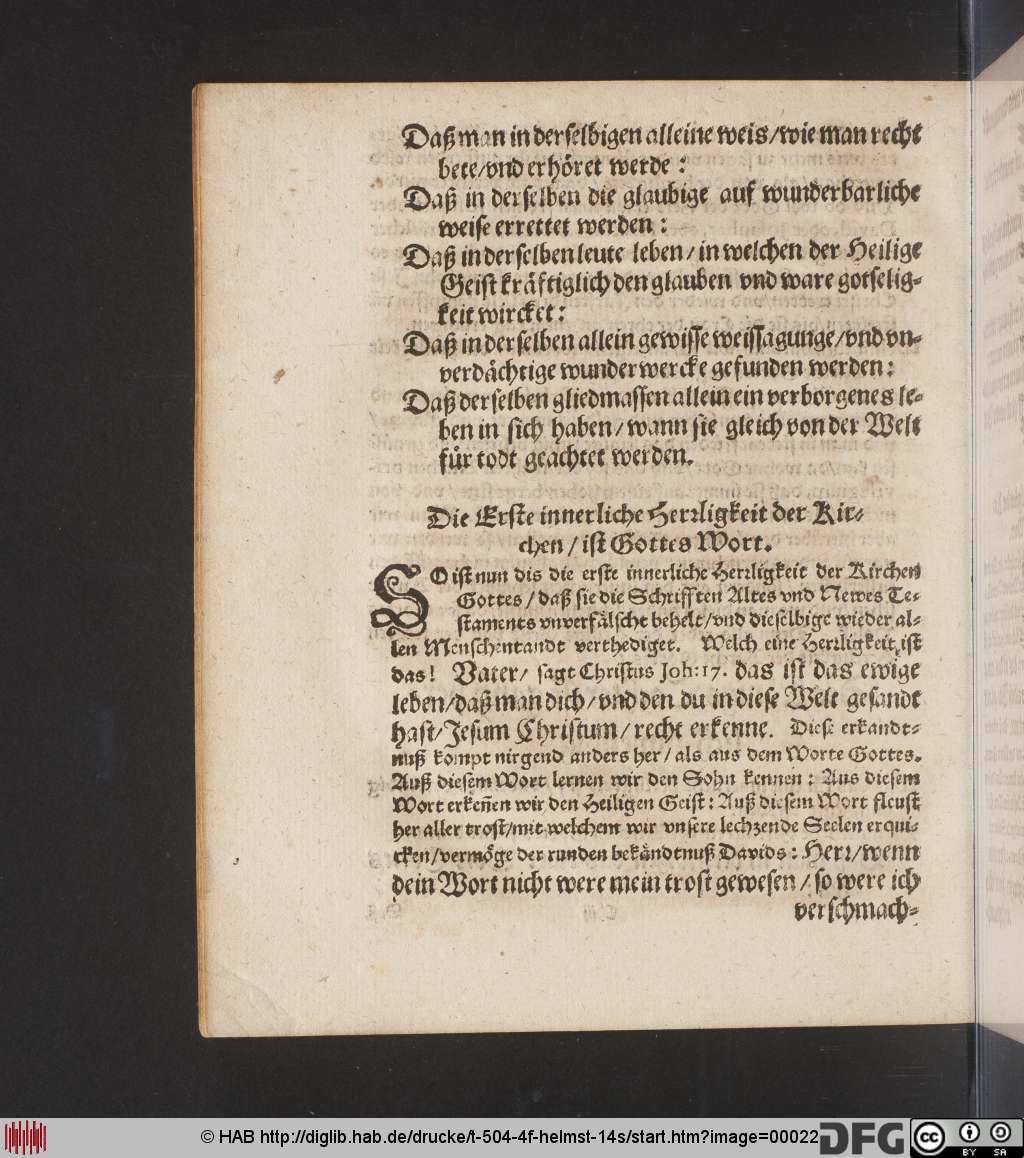 Daß man in derselbigen alleine weis/wie man recht
bete/vnd erhöret werde:
Daß in derselben die glaubige auf wunderbarliche
weise errettet werden:
Daß in derselben leute leben/in welchen der Heilige
Geist kräftiglich den glauben vnd ware gotselig-
keit wircket:
Daß in derselben allein gewisse weissagunge/vnd vn-
verdächtige wunderwercke gefunden werden:
Daß derselben gliedmassen allein ein verborgenes le-
ben in sich haben/wann sie gleich von der Welt
für todt geachtet werden.
Die Erste innerliche Herrligkeit der Kir-
chen/ist Gottes Wort.
SO ist nun dis die erste innerliche Herrligkeit der Kirchen
Gottes/daß sie die Schrifften Altes vnd Newes Te-
staments vnverfälscht behelt/vnd dieselbige wieder al-
len Menschentandt verthediget. Welch eine Herrligkeit ist
das! Vater/ sagt Christus Joh:17. das ist das ewige
leben/daß man dich/vnd den du in diese Welt gesandt
hast/Jesum Christum/recht erkenne. Diese erkandt-
nuß kompt nirgend anders her/als aus dem Worte Gottes.
Auß diesem Wort lernen wir den Sohn kennen: Aus diesem
Wort erkeñen wir den Heiligen Geist: Auß diesem Wort fleust
her aller trost/mit welchem wir vnsere lechzende Seelen erqui-
cken/vermöge der runden bekändtnuß Davids: Herr/wenn
dein Wort nicht were mein trost gewesen/so were ich
verschmach-
© HAB http://diglib.hab.de/drucke/t-504-4f-helmst-14s/start.htm?image=00022
DFG
cc BY SA